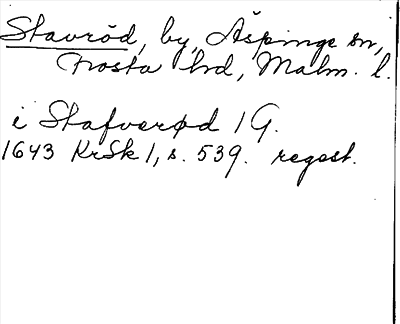 Stavröd, by, Äspinge sn,
Frosta hd, Malm. l.
i Stafverød 1 G.
1643 KrSk 1, s. 539. regest.